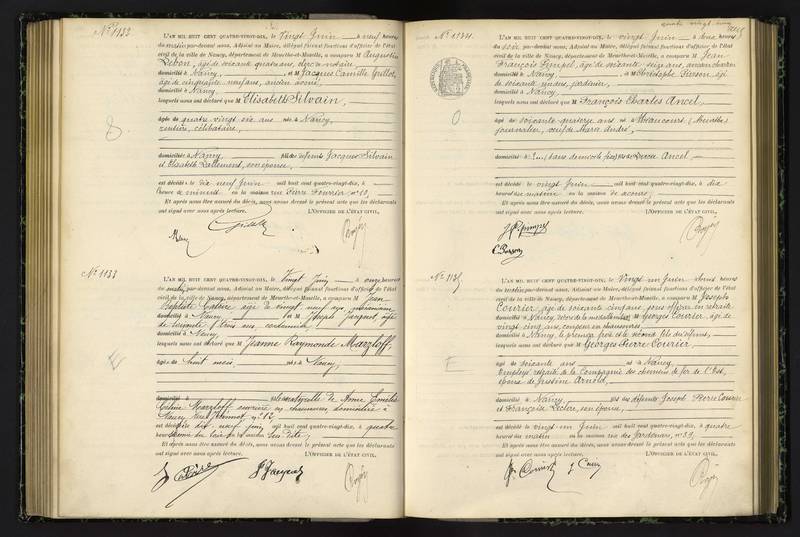 N° 1132
L'AN MIL HUIT CENT QUATRE-VINGT-DIX, le Vingt Juin à neuf heures
du matin par-devant nous, Adjoint au Maire, délégué faisant fonctions d'officier de l'état
civil de la ville de Nancy, département de Meurthe-et-Moselle, a comparu M Augustin
Lebon, âgé de soixante quatre ans, clerc de notaire
domicilié à Nancy, et M Jacques Camille Guillot,
âgé de cinquante neuf ans, ancien avoué
domicilié à Nancy,
lesquels nous ont déclaré que M Elisabeth Silvain,
âgée de quatre vingt six ans née à Nancy,
rentière, célibataire,
domiciliée à Nancy fille des défunts Jacques Silvain
et Elisabeth Lallement, son épouse,
est décédée le dix neuf Juin mil huit cent quatre-vingt-dix, à
heure de minuit en la maison rue Pierre Fourier n° 10,
Et après nous être assuré du décès, nous avons dressé le présent acte que les déclarants
ont signé avec nous après lecture. L'OFFICIER DE L'ÉTAT CIVIL,
N° 1133
L'AN MIL HUIT CENT QUATRE-VINGT-DIX, le Vingt Juin à onze heures
du matin par-devant nous, Adjoint au Maire, délégué faisant fonctions d'officier de l'état
civil de la ville de Nancy, département de Meurthe-et-Moselle, a comparu M Jean
Baptiste âgé de vingt neuf ans,
domicilié à Nancy et M Joseph Jacquot âgé
de soixante trois ans cordonnier
domicilié à Nancy
lesquels nous ont déclaré que Jeanne Raymonde Marzloff,
âgée de huit mois née à Nancy,
domicilié à fille naturelle de Anne
Céline Marzloff ouvrière en chaussures domiciliée à
Nancy n° 12
est décédée dix neuf Juin mil huit cent quatre-vingt-dix, à quatre
heures du soir en la maison
Et après nous être assuré du décès, nous avons dressé le présent acte que les déclarants
ont signé avec nous après lecture. L'OFFICIER DE L'ÉTAT CIVIL,
N° 1134
L'AN MIL HUIT CENT QUATRE-VINGT-DIX, le vingt Juin à deux heures
du soir par-devant nous, Adjoint au Maire, délégué faisant fonctions d'officier de l'état
civil de la ville de Nancy, département de Meurthe-et-Moselle, a comparu M Jean
François âgé de soixante seize ans, ancien charron
domicilié à Nancy, et M Christophe Person, âgé
de soixante ans, jardinier,
domicilié à Nancy
lesquels nous ont déclaré que M François Charles Ancel,
âgé de soixante quatorze ans né à (Meurthe)
journalier, veuf de Marie André,
domicilié à (sans domicile fixe) Ancel
est décédé le vingt Juin mil huit cent quatre-vingt-dix, à dix
heures du matin en la maison de secours,
Et après nous être assuré du décès, nous avons dressé le présent acte que les déclarants
ont signé avec nous après lecture. L'OFFICIER DE L'ÉTAT CIVIL,
N° 1135
L'AN MIL HUIT CENT QUATRE-VINGT-DIX, le Vingt un Juin heures
du matin par-devant nous, Adjoint au Maire, délégué faisant fonctions d'officier de l'état
civil de la ville de Nancy, département de Meurthe-et-Moselle, a comparu M Joseph
Courier, âgé de soixante cinq ans, sous officier en retraite
domicilié à Nancy, décoré de la médaille militaire et M Georges Courier, âgé de
vingt cinq ans, coupeur en chaussures
domicilié à Nancy, le premier frère et le second fils du défunt,
lesquels nous ont déclaré que M Georges Pierre Courier,
âgé de soixante ans né à Nancy
Employé retraité de la Compagnie des chemins de fer de l'Est,
époux de Justine Arnold,
domicilié à Nancy, fils des défunts Joseph Pierre Courier
et Françoise Leclerc, son épouse,
est décédé le vingt un Juin mil huit cent quatre-vingt-dix, à quatre
heures du matin en la maison rue des Jardeniers, n° 39,
Et après nous être assuré du décès, nous avons dressé le présent acte que les déclarants
ont signé avec nous après lecture. L'OFFICIER DE L'ÉTAT CIVIL,